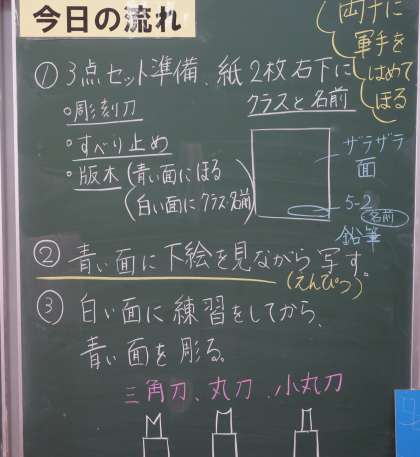 今日の流れ
両手に
軍手を
はめて
ほる
① 3点セット準備、紙2枚右下に
クラスと名前
・彫刻刀
・すべり止め
・版木(青い面にほる
(白い面にクラス・名前)
ザラザラ
面
5-2
名前
鉛筆
② 青い面に下絵を見ながら写す。
(えんぴつ)
③ 白い面に練習をしてから、
青い面を彫る。
三角刀、丸刀、小丸刀